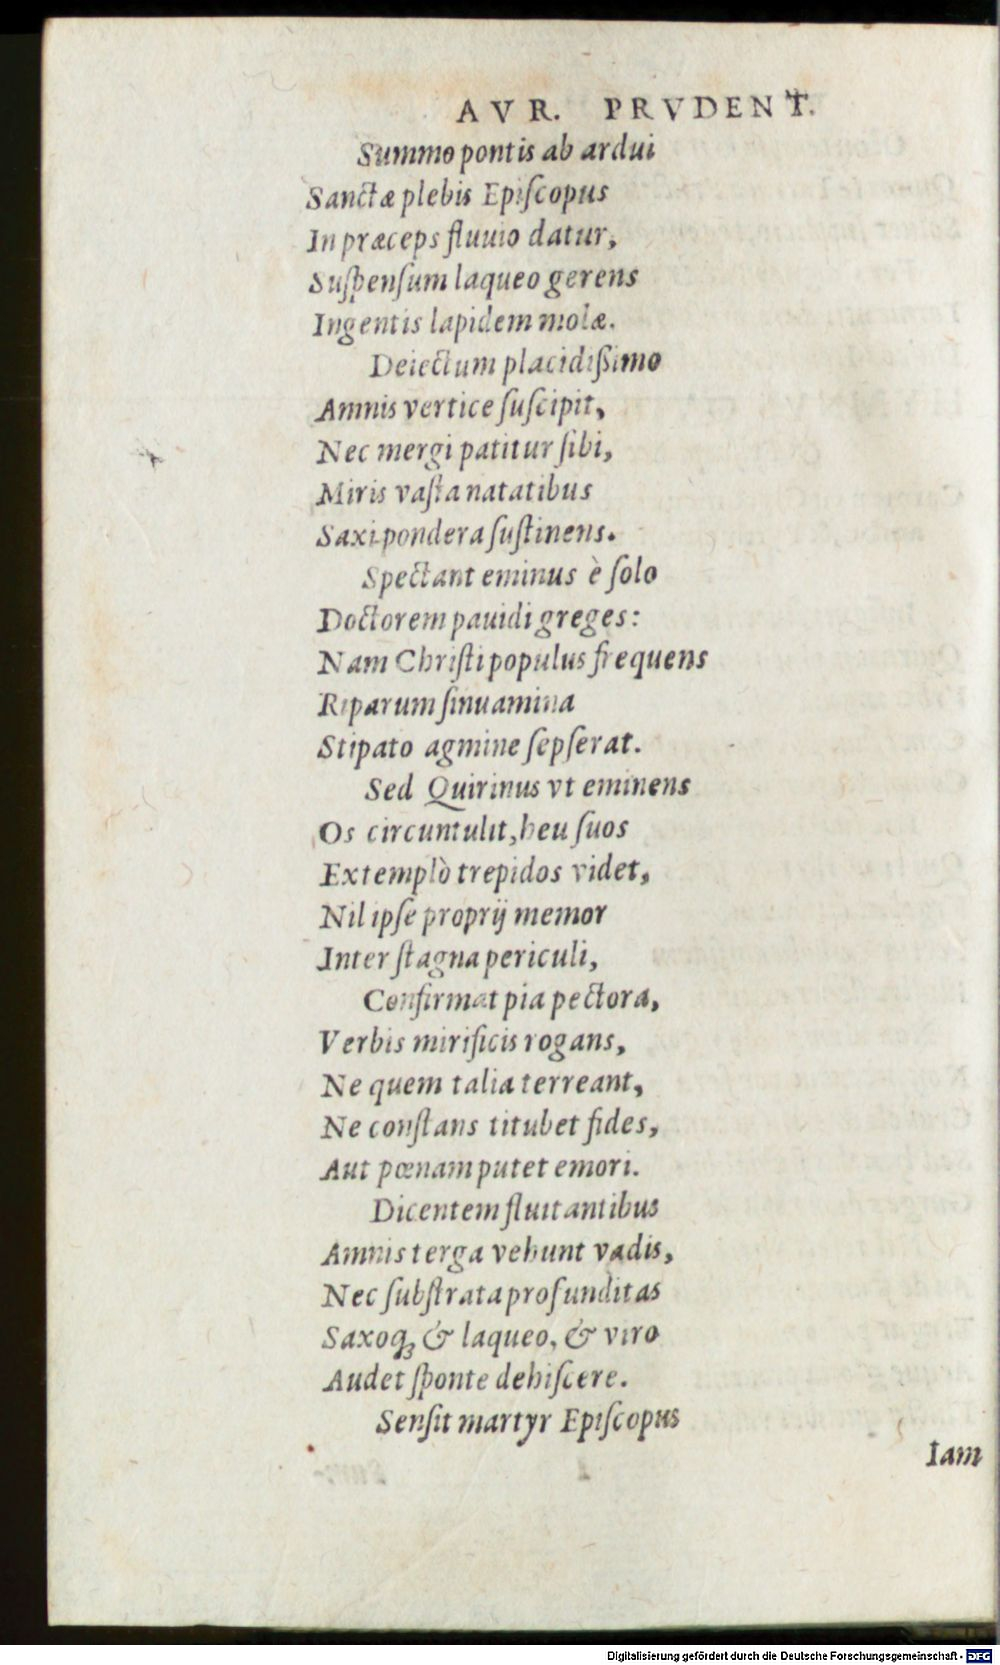 AVR. PRVDENT.
Summo pontis ab ardui
Sanctæ plebis Epiſcopus
In præceps fluuio datur,
Suſpenſum laqueo gerens
Ingentis lapidem molæ.
Deiectum placidiſsimo
Amnis vertice ſuſcipit,
Nec mergi patitur ſibi,
Miris vaſta natatibus
Saxi pondera ſuſtinens.
Spectant eminus è ſolo
Doctorem pauidi greges:
Nam Chriſti populus frequens
Riparum ſinuamina
Stipato agmine ſepſerat.
Sed Quirinus vt eminens
Os circuntulit, heu ſuos
Extemplò trepidos videt,
Nil ipſe proprij memor
Inter ſtagna periculi,
Confirmat pia pectora,
Verbis mirificis rogans,
Ne quem talia terreant,
Ne conſtans titubet fides,
Aut pœnam putet emori.
Dicentem fluitantibus
Amnis terga vehunt vadis,
Nec ſubſtrata profunditas
Saxoq; & laqueo, & viro
Audet ſponte dehiſcere.
Senſit martyr Epiſcopus
Iam
Digitalisierung gefördert durch die Deutsche Forschungsgemeinschaft - DFG